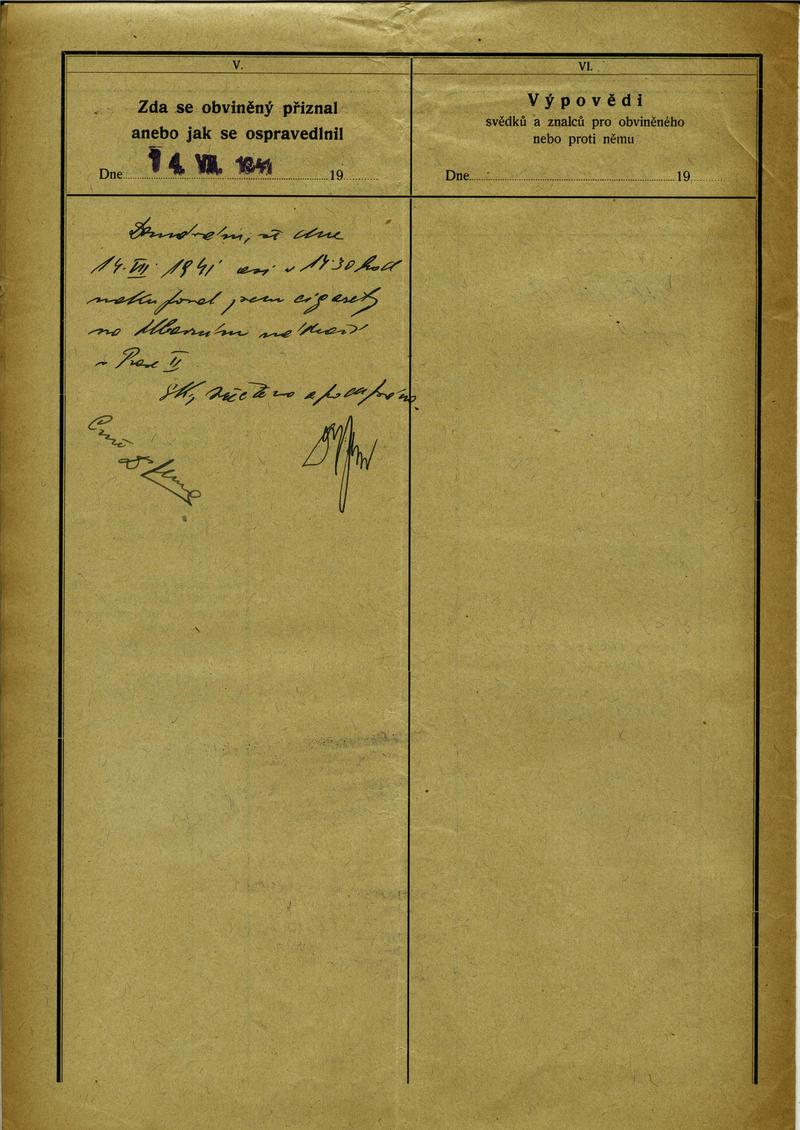 V.
Zda se obviněný přiznal
anebo jak se ospravedlnil
Dne 14. VII. 1941 19
VI.
Výpovědi
svědků a znalců pro obviněného
nebo proti němu
Dne 19
že dne
14. VII 1941 asi v 17·30 hod
nakupoval jsem cigarety
na
v II
a podepsáno